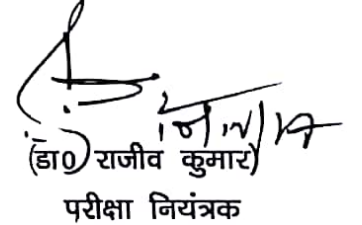 (डा0) राजीव कुमार)
परीक्षा नियंत्रक